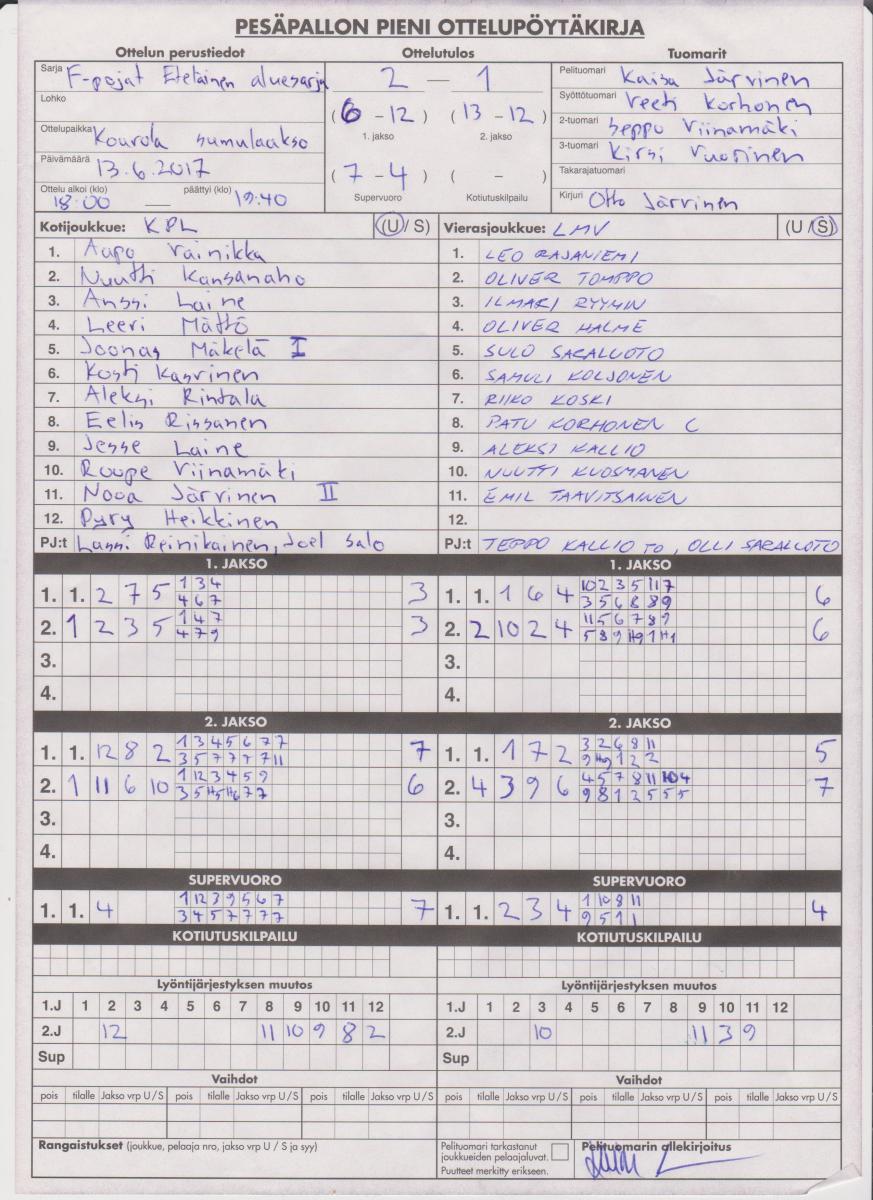 PESÄPALLON PIENI OTTELUPÖYTÄKIRJA
Ottelun perustiedot
Sarja F-pojat Eteläinen aluesarja
Lohko
Ottelupaikka Kouvola sumulaakso
Päivämäärä 13.6.2017
Ottelu alkoi (klo) päättyi (klo)
18:00 — 19:40
Ottelutulos
2 — 1
(6 - 12) (13 - 12)
1. jakso 2. jakso
(7 - 4) ( - )
Supervuoro Kotiutuskilpailu
Tuomarit
Pelituomari Kaisa Järvinen
Syöttötuomari Veeti Korhonen
2-tuomari Seppo Viinamäki
3-tuomari Kirsi Vuorinen
Takarajatuomari
Kirjuri Otto Järvinen
Kotijoukkue: KPL (U / S)
1. Aapo Vainikka
2. Nuutti Kansanaho
3. Anssi Laine
4. Leevi Mättö
5. Joonas Mäkelä I
6. Kosti Kasvinen
7. Aleksi Rintala
8. Eelis Rissanen
9. Jesse Laine
10. Roope Viinamäki
11. Nooa Järvinen II
12. Pyry Heikkinen
PJ:t Lassi Reinikainen, Joel Salo
Vierasjoukkue: LMV (U / S)
1. LEO RAJANIEMI
2. OLIVER TOMPPO
3. ILMARI RYYNIN
4. OLIVER HALME
5. SULO SARALUOTO
6. SAMULI KOLJONEN
7. RIIKO KOSKI
8. PATU KORHONEN C
9. ALEKSI KALLIO
10. NUUTTI KUOSMANEN
11. EMIL TAAVITSAINEN
12.
PJ:t TEPPO KALLIO TO, OLLI SARALUOTO
1. JAKSO
1. 1. 2 7 5 1 3 4 3
4 6 7
2. 1 2 3 5 1 4 7 3
4 7 9
3.
4.
1. JAKSO
1. 1. 1 6 4 10 2 3 5 11 7 6
3 5 6 8 8 9
2. 2 10 2 4 11 5 6 7 8 9 6
5 8 9 H9 1 H1
3.
4.
2. JAKSO
1. 1. 12 8 2 1 3 4 5 6 7 7 7
3 5 7 7 7 7 11
2. 1 11 6 10 1 12 3 4 5 9 6
3 5 H5 H6 7 7
3.
4.
2. JAKSO
1. 1. 1 7 2 3 2 6 8 11 5
9 H9 1 2 2
2. 4 3 9 6 4 5 7 8 11 10 4 7
9 8 1 2 5 5 5
3.
4.
SUPERVUORO
1. 1. 4 1 12 3 9 5 6 7 7
3 4 5 7 7 7 7
SUPERVUORO
1. 1. 2 3 4 1 10 8 11 4
9 5 1 1
KOTIUTUSKILPAILU
KOTIUTUSKILPAILU
Lyöntijärjestyksen muutos
1.J 1 2 3 4 5 6 7 8 9 10 11 12
2.J 12 11 10 9 8 2
Sup
Lyöntijärjestyksen muutos
1.J 1 2 3 4 5 6 7 8 9 10 11 12
2.J 10 11 3 9
Sup
Vaihdot
pois tilalle Jakso vrp U / S pois tilalle Jakso vrp U / S pois tilalle Jakso vrp U / S
Vaihdot
pois tilalle Jakso vrp U / S pois tilalle Jakso vrp U / S pois tilalle Jakso vrp U / S
Rangaistukset (joukkue, pelaaja nro, jakso vrp U / S ja syy)
Pelituomari tarkastanut
joukkueiden pelaajaluvat.
Puutteet merkitty erikseen.
Pelituomarin allekirjoitus